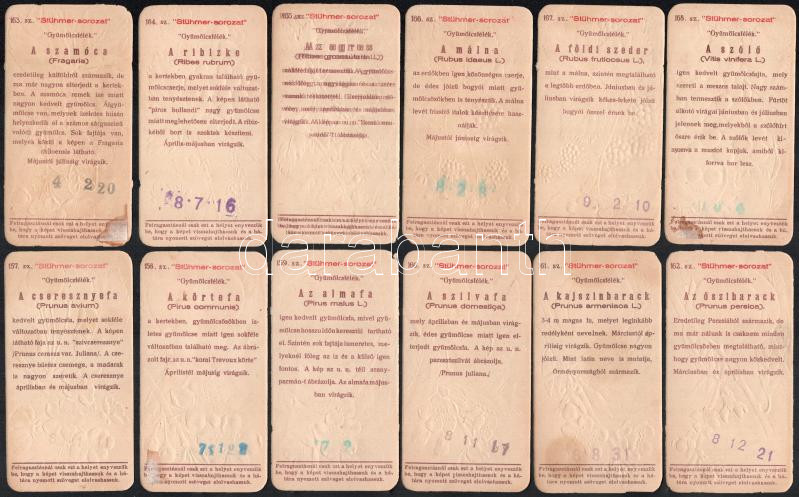 163. sz. "Stühmer-sorozat"
"Gyümölcsfélék."
A szamóca
(Fragaria)
eredetileg külföldről származik, de
ma már nagyon elterjedt a kertek-
ben. A szamóca remek íze miatt
nagyon kedvelt gyümölcs. Álgyü-
mölcse van, melynek ízletes húsán
helyezkedik el a számos sárgaszinű
valódi gyümölcs. Sok fajtája van,
melyek közül a képen a Fragaria
chiloensis látható.
Májustól júliusig virágzik.
4 220
Felragasztásnál csak ezt a helyet enyvezzük
be, hogy a képet visszahajthassuk és a há-
tára nyomott szöveget elolvashassuk.
164. sz. "Stühmer-sorozat"
"Gyümölcsfélék."
A ribizke
(Ribes rubrum)
a kertekben gyakran található gyü-
mölcscserje, melyet sokféle változat-
ban tenyésztenek. A képen látható
"piros hollandi" nagy gyümölcse
miatt meglehetősen elterjedt. A ribiz-
kéből bort is szoktak készíteni.
Április-májusban virágzik.
8·7·16
Felragasztásnál csak ezt a helyet enyvezzük
be, hogy a képet visszahajthassuk és a há-
tára nyomott szöveget elolvashassuk.
165. sz. "Stühmer-sorozat"
"Gyümölcsfélék."
Az egres
Felragasztásnál csak ezt a helyet enyvezzük
be, hogy a képet visszahajthassuk és a há-
tára nyomott szöveget elolvashassuk.
166. sz. "Stühmer-sorozat"
"Gyümölcsfélék."
A málna
(Rubus idaeus L.)
az erdőkben igen közönséges cserje,
de édes jóízű bogyói miatt gyü-
mölcsösökben is tenyésztik. A málna
levét frissítő italok készítésére hasz-
nálják.
Májustól júniusig virágzik.
Felragasztásnál csak ezt a helyet enyvezzük
be, hogy a képet visszahajthassuk és a há-
tára nyomott szöveget elolvashassuk.
167. sz. "Stühmer-sorozat"
"Gyümölcsfélék."
A földi szeder
(Rubus fruticosus L.),
mint a málna, szintén megtalálható
a legtöbb erdőben. Júniusban és jú-
liusban virágzik kékes-fekete jóízű
bogyói ősszel érnek be.
9 2 10
Felragasztásnál csak ezt a helyet enyvezzük
be, hogy a képet visszahajthassuk és a há-
tára nyomott szöveget elolvashassuk.
168. sz. "Stühmer-sorozat"
"Gyümölcsfélék."
A szőlő
(Vitis vinifera L.)
igen kedvelt gyümölcsfajta, mely
szereti a meszes talajt. Nagy szám-
ban termesztik a szőlőkben. Fürtöt
alkotó virágai júniusban és júliusban
jelennek meg, melyekből a szőlőfürt
őszre érik be. A szőlők levét ki-
nyomva a mustot kapjuk, amiből ki-
forrva bor lesz.
Felragasztásnál csak ezt a helyet enyvezzük
be, hogy a képet visszahajthassuk és a há-
tára nyomott szöveget elolvashassuk.
darabanth
157. sz. "Stühmer-sorozat"
"Gyümölcsfélék."
A cseresznyefa
(Prunus avium)
kedvelt gyümölcsfa, melyet sokféle
változatban tenyésztenek. A képen
látható fajta az u. n. "szívcseresznye"
/Prunus cerasus var. Juliana/. A cse-
resznye ízletes csemege, a madarak
is nagyon szeretik. A cseresznye
áprilisban és májusban virágzik.
Felragasztásnál csak ezt a helyet enyvezzük
be, hogy a képet visszahajthassuk és a há-
tára nyomott szöveget elolvashassuk.
158. sz. "Stühmer-sorozat"
"Gyümölcsfélék."
A körtefa
(Pirus communis)
a kertekben, gyümölcsösökben íz-
letes gyümölcse miatt igen sokféle
változatban található meg. Az ábrá-
zolt fajt, az u. n. "korai Trevoux körte"
Áprilistól májusig virágzik.
Felragasztásnál csak ezt a helyet enyvezzük
be, hogy a képet visszahajthassuk és a há-
tára nyomott szöveget elolvashassuk.
159. sz. "Stühmer-sorozat"
"Gyümölcsfélék."
Az almafa
(Pirus malus L.)
igen kedvelt gyümölcsfa, mivel gyü-
mölcse hosszú időn keresztül tartható
el. Szintén sok fajtája ismeretes, me-
lyeknél főleg az íz és a külső igen
fontos. A kép az u. n. téli arany-
parmän-t ábrázolja. Az almafa május-
ban virágzik.
Felragasztásnál csak ezt a helyet enyvezzük
be, hogy a képet visszahajthassuk és a há-
tára nyomott szöveget elolvashassuk.
160. sz. "Stühmer-sorozat"
"Gyümölcsfélék."
A szilvafa
(Prunus domestica)
mely áprilisban és májusban virág-
zik, édes gyümölcse miatt igen el-
terjedt gyümölcsfa. A kép az u. n.
parasztszilvát ábrázolja.
/Prunus juliana/.
8 11 17
Felragasztásnál csak ezt a helyet enyvezzük
be, hogy a képet visszahajthassuk és a há-
tára nyomott szöveget elolvashassuk.
61. sz. "Stühmer-sorozat"
"Gyümölcsfélék."
A kajszinbarack
(Prunus armeniaca L.)
3-4 m magas fa, melyet leginkább
redélyként nevelnek. Márciustól áp-
rilisig virágzik. Gyümölcse nagyon
jóízű. Mint latin neve is mutatja,
Örményországból származik.
8 31
Felragasztásnál csak ezt a helyet enyvezzük
be, hogy a képet visszahajthassuk és a há-
tára nyomott szöveget elolvashassuk.
162. sz. "Stühmer-sorozat"
"Gyümölcsfélék."
Az őszibarack
(Prunus persica).
Eredetileg Perzsiából származik, de
ma már nálunk is csaknem minden
gyümölcsösben megtalálható, mint-
hogy gyümölcse nagyon közkedvelt.
Márciusban és áprilisban virágzik.
8 12 21
Felragasztásnál csak ezt a helyet enyvezzük
be, hogy a képet visszahajthassuk és a há-
tára nyomott szöveget elolvashassuk.